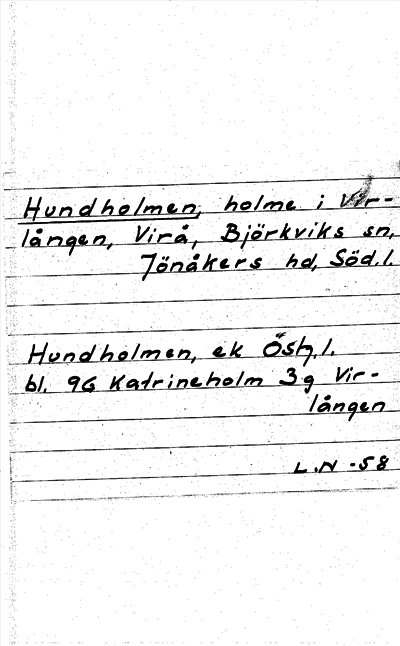 Hundholmen, holme i Vir-
lången, Virå, Björkviks sn,
Jönåkers hd, Söd.l.
Hundholmen, ek Östg.l.
bl. 9G Katrineholm 3g Vir-
lången
L.N -58